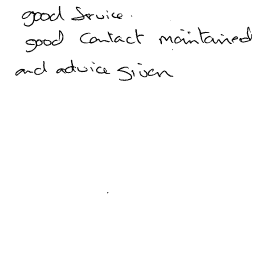 good Service.
good contact maintained
and advice given